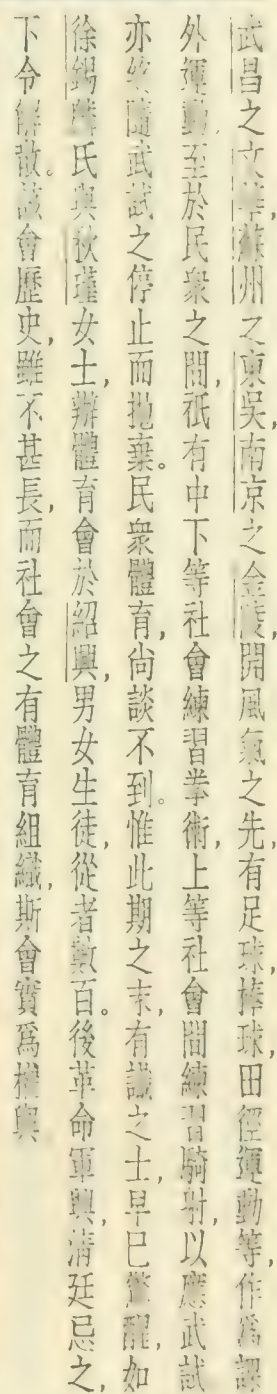 武昌之文華,蘇州之東吳,南京之金陵,開風氣之先,有足球,棒球,田徑運動等,作爲課
外運動,至於民衆之間,祇有中下等社會練習拳術,上等社會間練習騎射,以應武試
亦終隨武試之停止而抛棄。民衆體育,尙談不到。惟此期之末,有識之士,早已驚醒,如
徐錫麟氏與秋瑾女士,辦體育會於紹興,男女生徒,從者數百。後革命軍興,淸廷忌之,
下令解散。該會歷史,雖不甚長,而社會之有體育組織,斯會實爲權輿